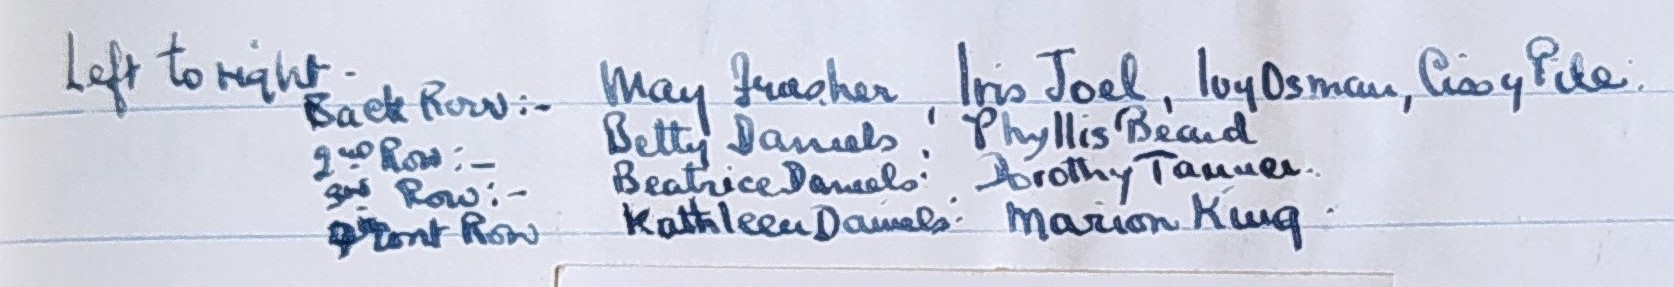 Left to right -
Back Row :- May Frasher Iris Joel, Ivy Osman, Cissy Pile.
2nd Row :- Betty Daniels, Phyllis Beard
3rd Row :- Beatrice Daniels. Dorothy Tanner.
Front Row Kathleen Daniels. Marion King.